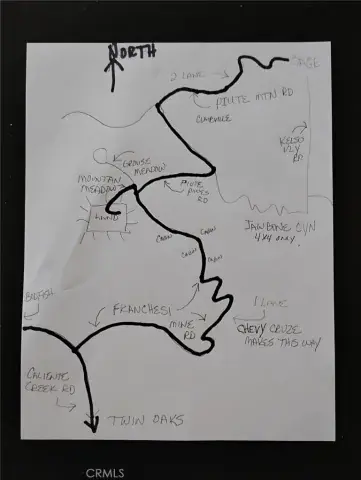 NORTH
SAGE
2 LANE
PIUTE MTN RD
CLARAVILLE
KELSO
VLY
RD
GROUSE
MEADOW
MOUNTAIN
MEADOW
PIUTE
PINES
RD
LAND
JAWBONE CYN
4X4 ONLY
CABIN
CABIN
CABIN
CABIN
FRANCHESI
MINE
RD
1 LANE
CHEVY CRUZE
MAKES THIS WAY
CALIENTE
CREEK RD
TWIN OAKS
CRMLS